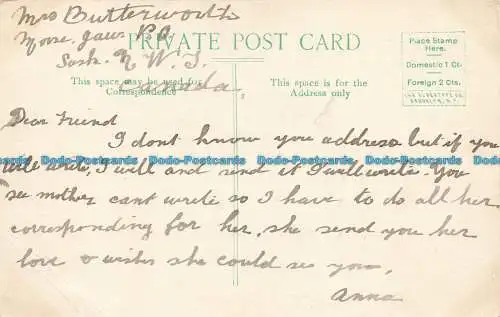 Mrs Butterworth
Moose Jaw P.O
Sask. N W. T.
Canada.
PRIVATE POST CARD
This space may be used for
Correspondence
This space is for the
Address only
Place Stamp
Here.
Domestic 1 Ct.
Foreign 2 Cts.
Dear Friend
I dont know you address but if you
will write, I will and send it I will write. You
see mother cant write so I have to do all her
corresponding for her, she send you her
love & wishes she could see you,
Anna
Dodo-Postcards Dodo-Postcards Dodo-Postcards Dodo-Postcards Dodo-Postcards Dodo-Postcards